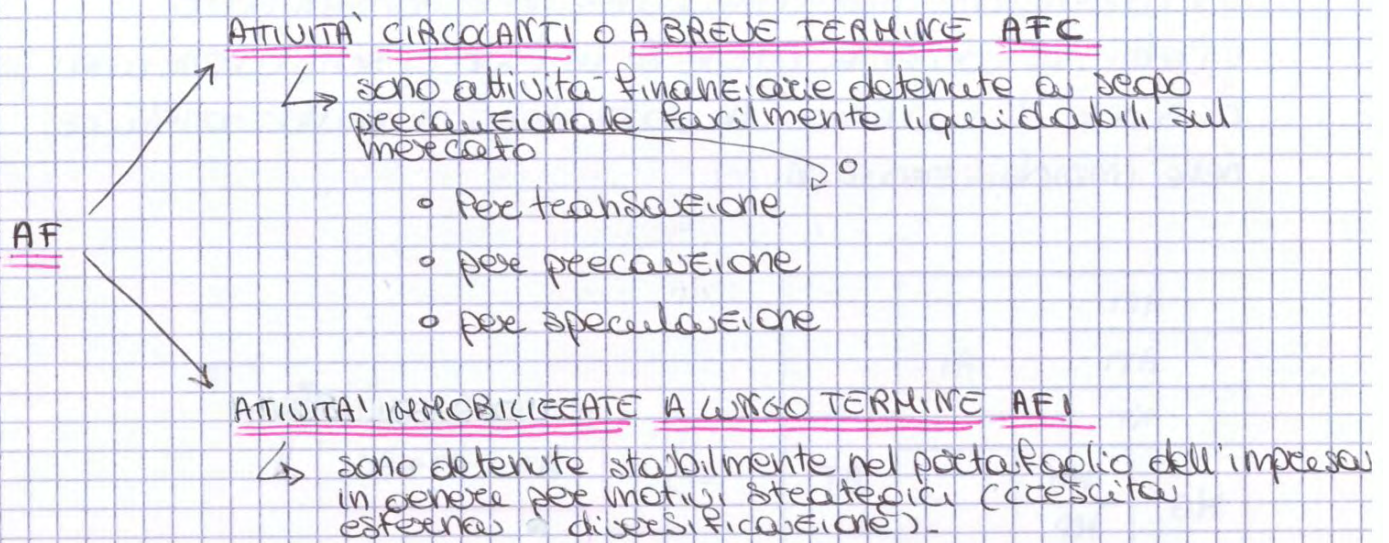 ATTIVITA' CIRCOLANTI O A BREVE TERMINE AFC
sono attività finanziarie detenute a scopo
precauzionale facilmente liquidabili sul
mercato
Per transazione
AF
per precauzione
per speculazione
ATTIVITA' IMMOBILIZZATE A LUNGO TERMINE AFI
sono detenute stabilmente nel portafoglio dell'impresa
in genere per motivi strategici (crescita
esterna diversificazione).